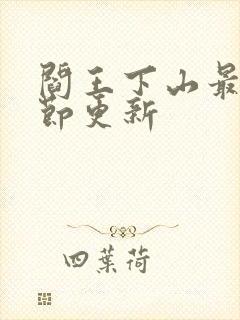 閻王下山最
節更新
四葉荷